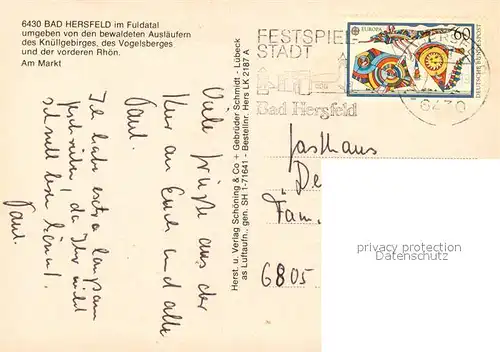 6430 BAD HERSFELD im Fuldatal
umgeben von den bewaldeten Ausläufern
des Knüllgebirges, des Vogelsberges
und der vorderen Rhön.
Am Markt
Viele Grüße aus der
Kur an Euch und alle
Paul.
Ich habe extra langsam
geschrieben, da Ihr nicht
schnell lesen könnt!
Paul.
Herst. u. Verlag Schöning & Co + Gebrüder Schmidt - Lübeck
as Luftaufn., gen. SH 1-71641 - Bestellnr. Hers LK 2187 A
FESTSPIEL
STADT
Bad Hersfeld
EUROPA
60
DEUTSCHE BUNDESPOST
6430
Gasthaus
De
Fam.
6805
privatpostkarten.de